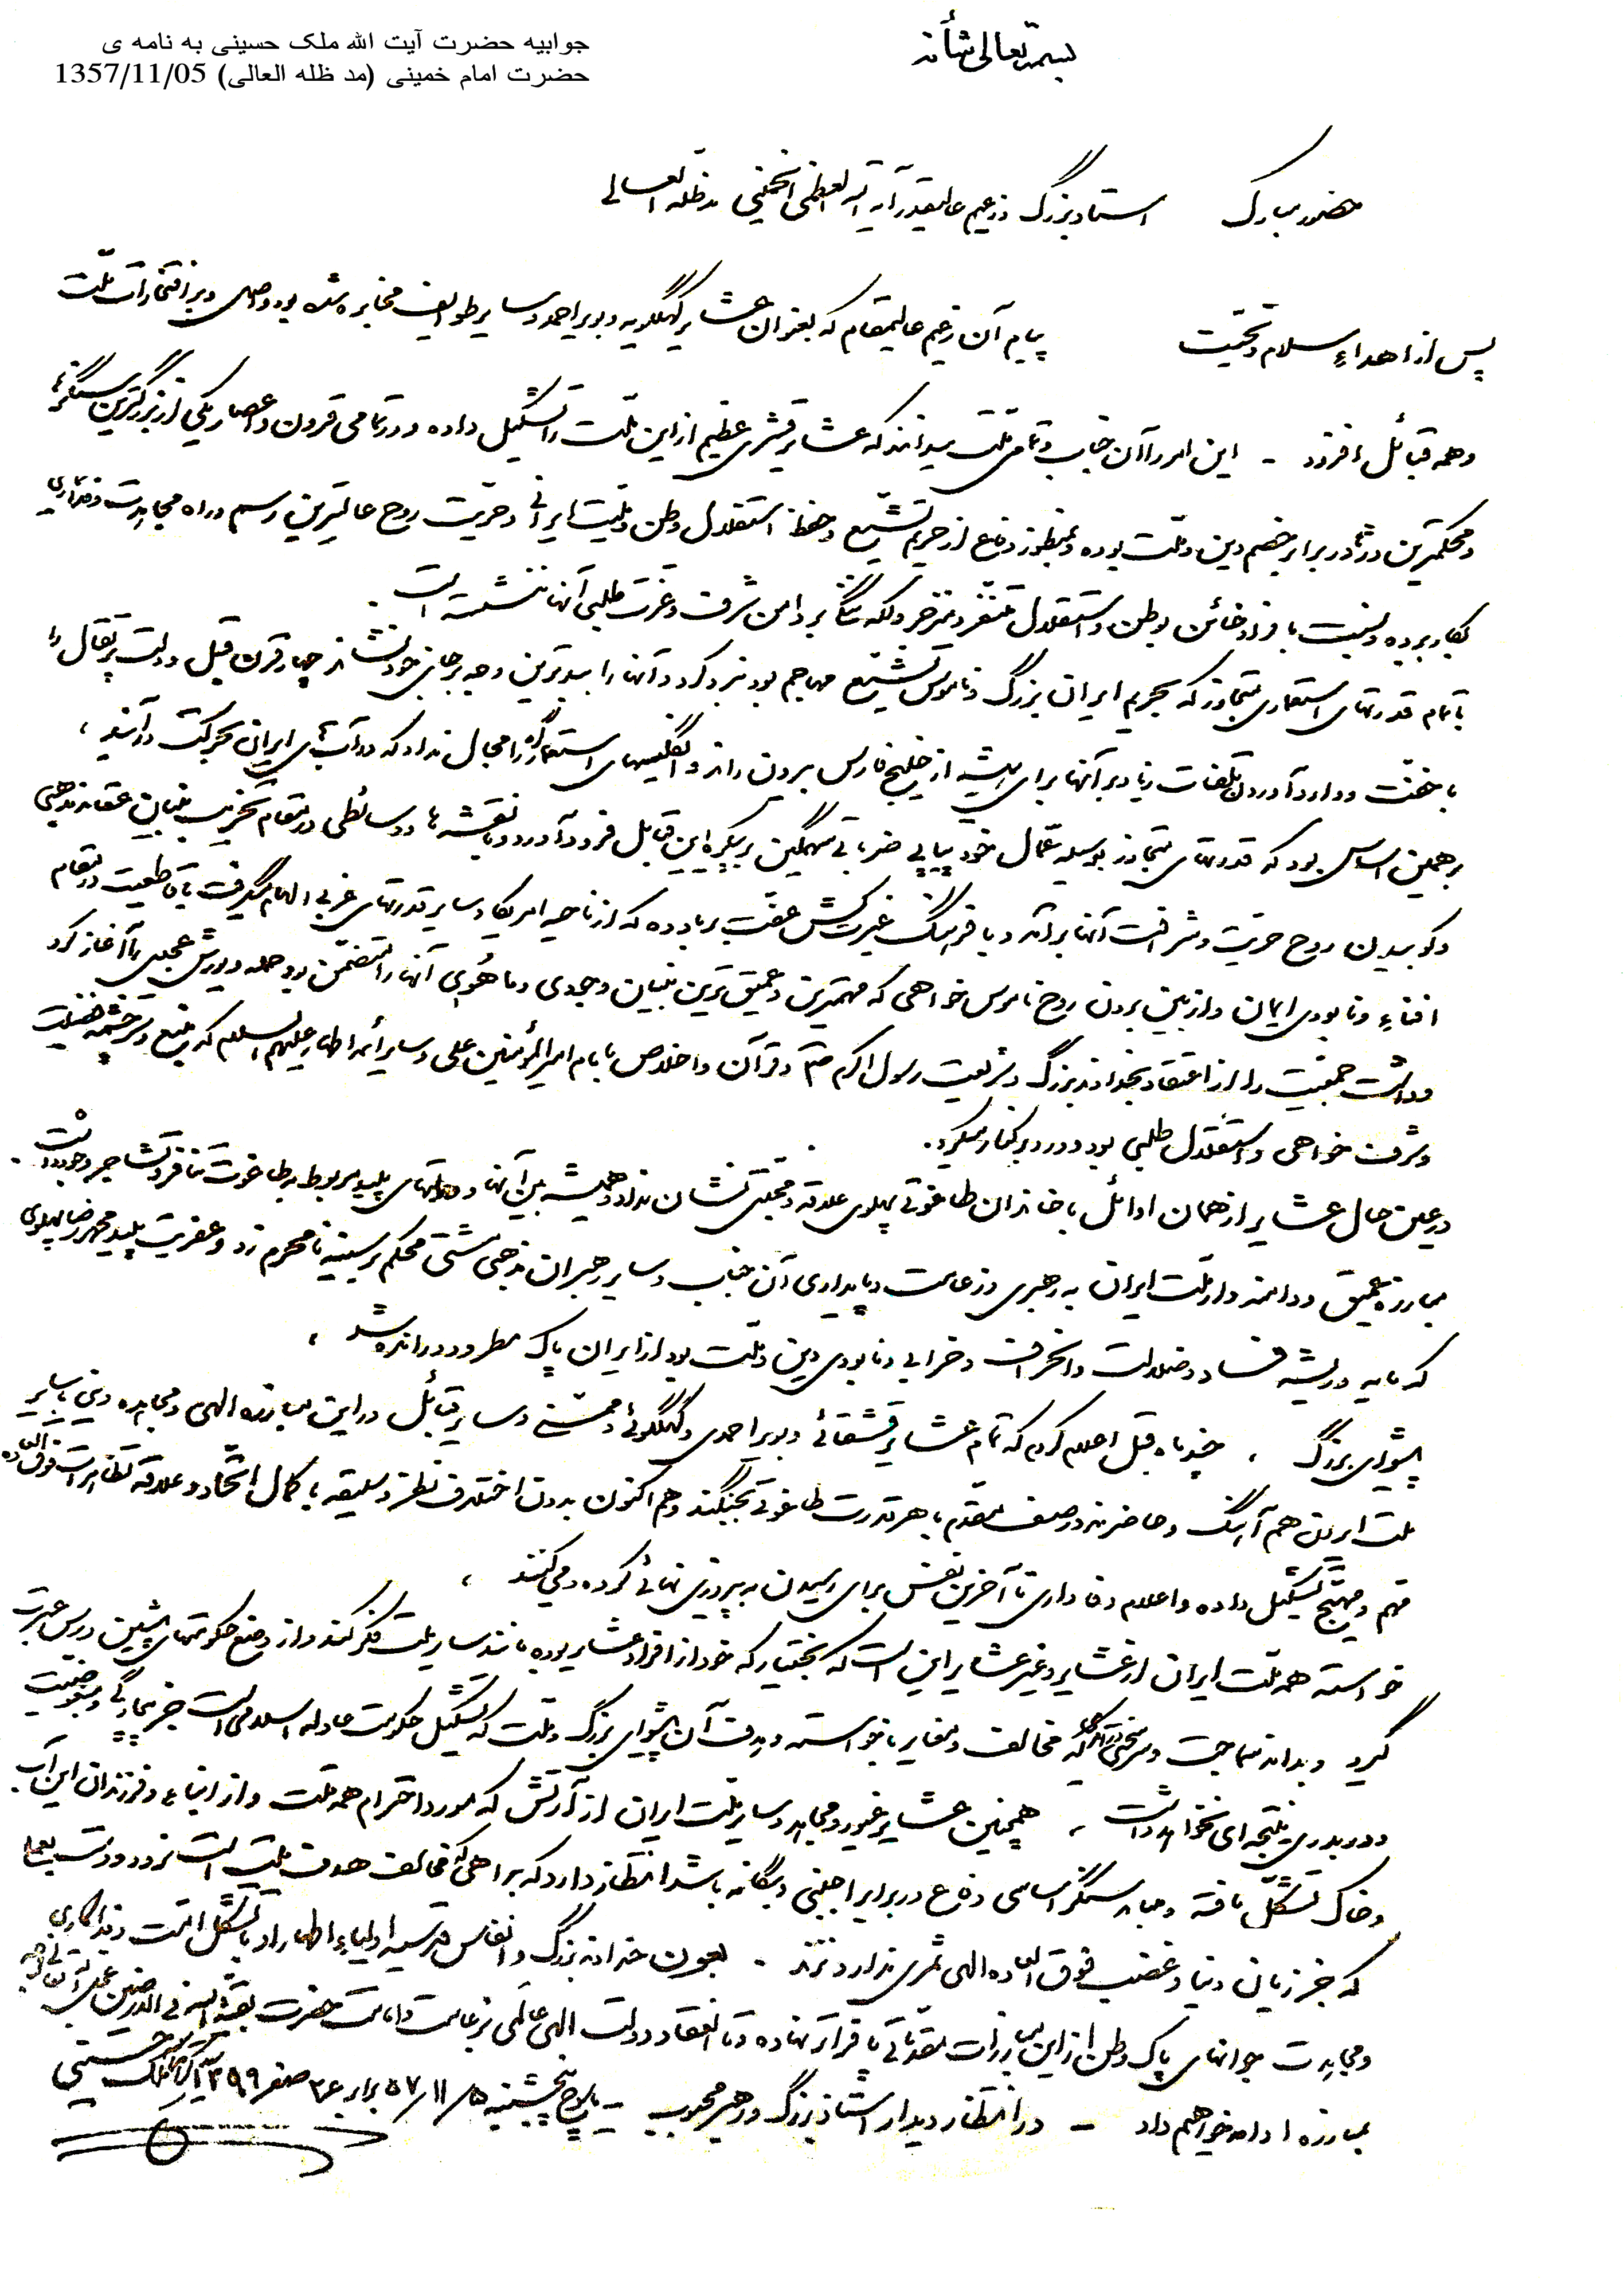 جوابیه حضرت آیت الله ملک حسینی به نامه ی
حضرت امام خمینی (مد ظله العالی) 1357/11/05
بسمه تعالی شأنه
حضور مبارک استاد بزرگ زعیم عالیقدر آیة الله العظمی الخمینی مد ظله العالی
پس از اهداء سلام و تحیت پیام آن زعیم عالیمقام که بعنوان عشایر کهگلویه و بویراحمد و سایر طوایف مخابره شده بود واصل و بر افتخارات ملت
و همه قبائل افزود - این امر را آن جناب و تمامی ملت میدانند که عشایر قشری عظیم از این ملت را تشکیل داده و در تمامی قرون و اعصار یکی از بزرگترین سنگرها
و محکمترین دژها در برابر خصم دین و ملت بوده و بمنظور دفاع از حریم تشیع و حفظ استقلال وطن و ملیت ایرانی و حریت روح عالیترین رسم و راه مجاهدت و فداکاری
بکار برده و نسبت بافراد خائن بوطن و استقلال متنفر و منزجر و لکه ننگ بر دامن شرف و عزت طلبی آنها ننشسته است .
با تمام قدرتهای استعماری متجاوز که بحریم ایران بزرگ و ناموس تشیع مهاجم بود نبرد کرد و آنها را ببدترین وجه بر جای خود نشاند چهار قرن قبل دولت پرتقال را
با خفت و وارد آوردن تلفات زیاد بر آنها برای همیشه از خلیج فارس بیرون راند و انگلیسهای استعمارگر را مجال نداد که در آب های ایران بحرکت درآیند ،
بر همین اساس بود که قدرتهای متجاوز بوسیله عمال خود پیاپی ضرباتی سهمگین بر پیکره این قبایل فرود آورد و با نقشه ها و وسائطی در مقام تخریب بنیان عقائد مذهبی
و کوبیدن روح حریت و شرافت آنها برآمد و با فرهنگ غیرت کش عفت برباد ده که از ناحیه امریکا و سایر قدرتهای غربی الهام میگرفت با قاطعیت در مقام
افناء و نابودی ایمان و از بین بردن روح ناموس خواهی که مهمترین و عمیق ترین بنیان وجودی و ماهوی آنها را متضمن بود حمله و یورش عجیبی را آغاز کرد
و داشت جمعیت را از اعتقاد بخداوند بزرگ و شریعت رسول اکرم ص و قرآن و اخلاص بامام امیرالمؤمنین علی و سایر ائمه اطهار علیهم السلام که منبع و سرچشمه فضیلت
و شرف خواهی و استقلال طلبی بود دور و برکنار میکرد .
در عین حال عشایر از همان اوائل با خاندان طاغوتی پهلوی علاقه و محبتی نشان نداد و همیشه بین آنها و دولتهای پلید مربوط به طاغوت تنافر و تشاجر وجود داشت .
مبارزه عمیق و دامنه دار ملت ایران به رهبری و زعامت و پایداری آن جناب و سایر رهبران مذهبی مشتی محکم بر سینه نامحرم زد و عفریت پلید محمدرضا پهلوی
که مایه و ریشه فساد و ضلالت و انحراف و خرابی و نابودی دین و ملت بود از ایران پاک مطرود و رانده شد ،
پیشوای بزرگ ، چند ماه قبل اعلام کردم که تمام عشایر قشقائی و بویراحمدی و کهگلوئی و ممسنی و سایر قبائل در این مبارزه الهی و مجاهده دینی با سایر
ملت ایران هم آهنگ و حاضرند در صف مقدم با هر قدرت طاغوتی بجنگند و هم اکنون بدون اختلاف نظر و سلیقه با کمال اتحاد و علاقه تظاهرات فوق العاده
مهم و مهیج تشکیل داده و اعلام وفاداری تا آخرین نفس برای رسیدن به پیروزی نهائی کرده و می کنند ،
خواسته همه ملت ایران از عشایر و غیر عشایر این است که بختیار که خود از افراد عشایر بوده مانند سایر ملت فکر کند و از وضع حکومتهای پیشین درس عبرت
گیرد و بداند سماجت و سرسختی که مخالف و مغایر با خواسته و هدف آن پیشوای بزرگ و ملت که تشکیل حکومت عادله اسلامی است جز بیچارگی و مبغوضیت
و دربدری نتیجه ای نخواهد داشت ، همچنین عشایر غیور و مجاهد و سایر ملت ایران از آرتش که مورد احترام همه ملت و از ابناء و فرزندان این آب
و خاک تشکل یافته و میباید سنگر اساسی دفاع در برابر اجنبی و بیگانه باشد انتظار دارد که براهی که مخالف هدف ملت است نرود و دست بعملی
که جز زیان دنیا و غضب فوق العاده الهی ثمری ندارد نزند . بعون خداوند بزرگ و انفاس قدسیه اولیاء اطهار او با تشکل امت و فداکاری
و مجاهدت جوانهای پاک وطن از این مبارزات مقدماتی بافراد نهاده و تا انعقاد دولت الهی عالمی بزعامت و امامت حضرت بقیة الله فی الارضین عجل الله تعالی فرجه
بمبارزه ادامه خواهیم داد – در انتظار دیدار استاد بزرگ و رهبر محبوب – بتاریخ پنجشنبه ۵/ ۱۱/ ۵۷ برابر ۲۶ صفر ۱۳۹۹ ملک حسینی